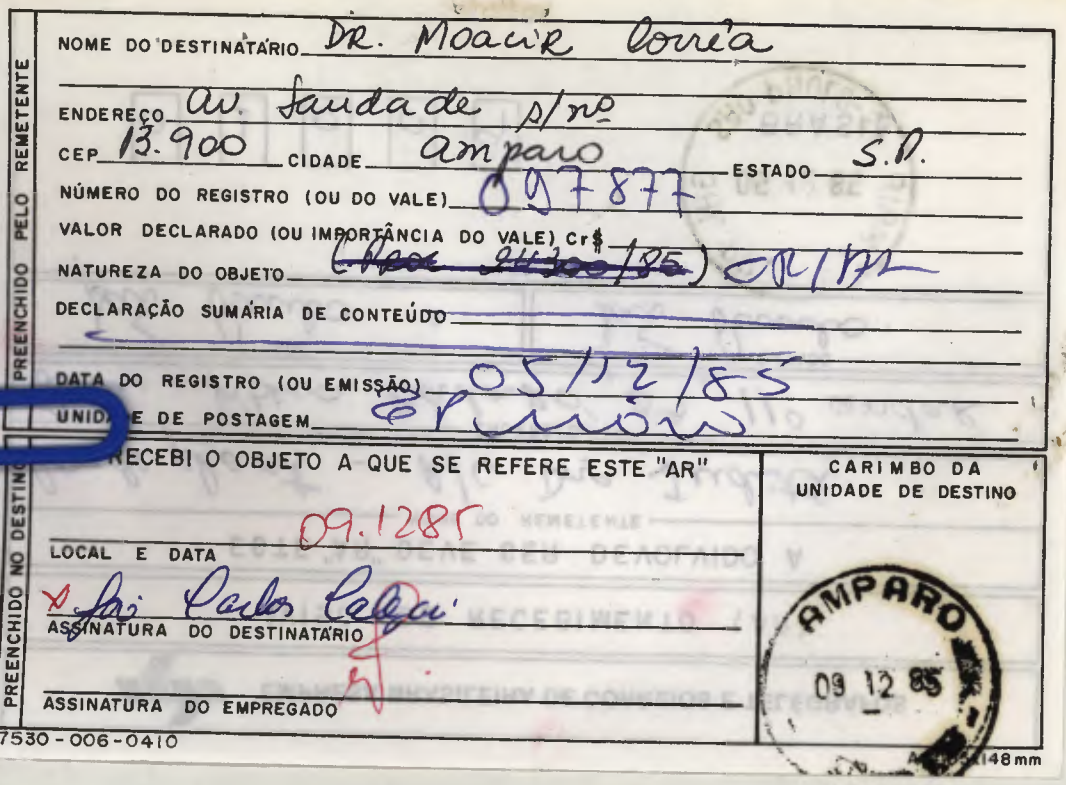 PREENCHIDO PELO REMETENTE
NOME DO DESTINATÁRIO DR. Moacir Corrêa
ENDEREÇO av. Saudade s/nº
CEP 13.900 CIDADE amparo ESTADO S.P.
NÚMERO DO REGISTRO (OU DO VALE) 097877
VALOR DECLARADO (OU IMPORTÂNCIA DO VALE) Cr$
NATUREZA DO OBJETO (Proc 24300/85)
DECLARAÇÃO SUMÁRIA DE CONTEÚDO
DATA DO REGISTRO (OU EMISSÃO) 05/12/85
UNIDADE DE POSTAGEM
PREENCHIDO NO DESTINO
RECEBI O OBJETO A QUE SE REFERE ESTE "AR"
09.1285
LOCAL E DATA
x José Carlos
ASSINATURA DO DESTINATÁRIO
ASSINATURA DO EMPREGADO
CARIMBO DA
UNIDADE DE DESTINO
AMPARO
09 12 85
7530-006-0410
148mm